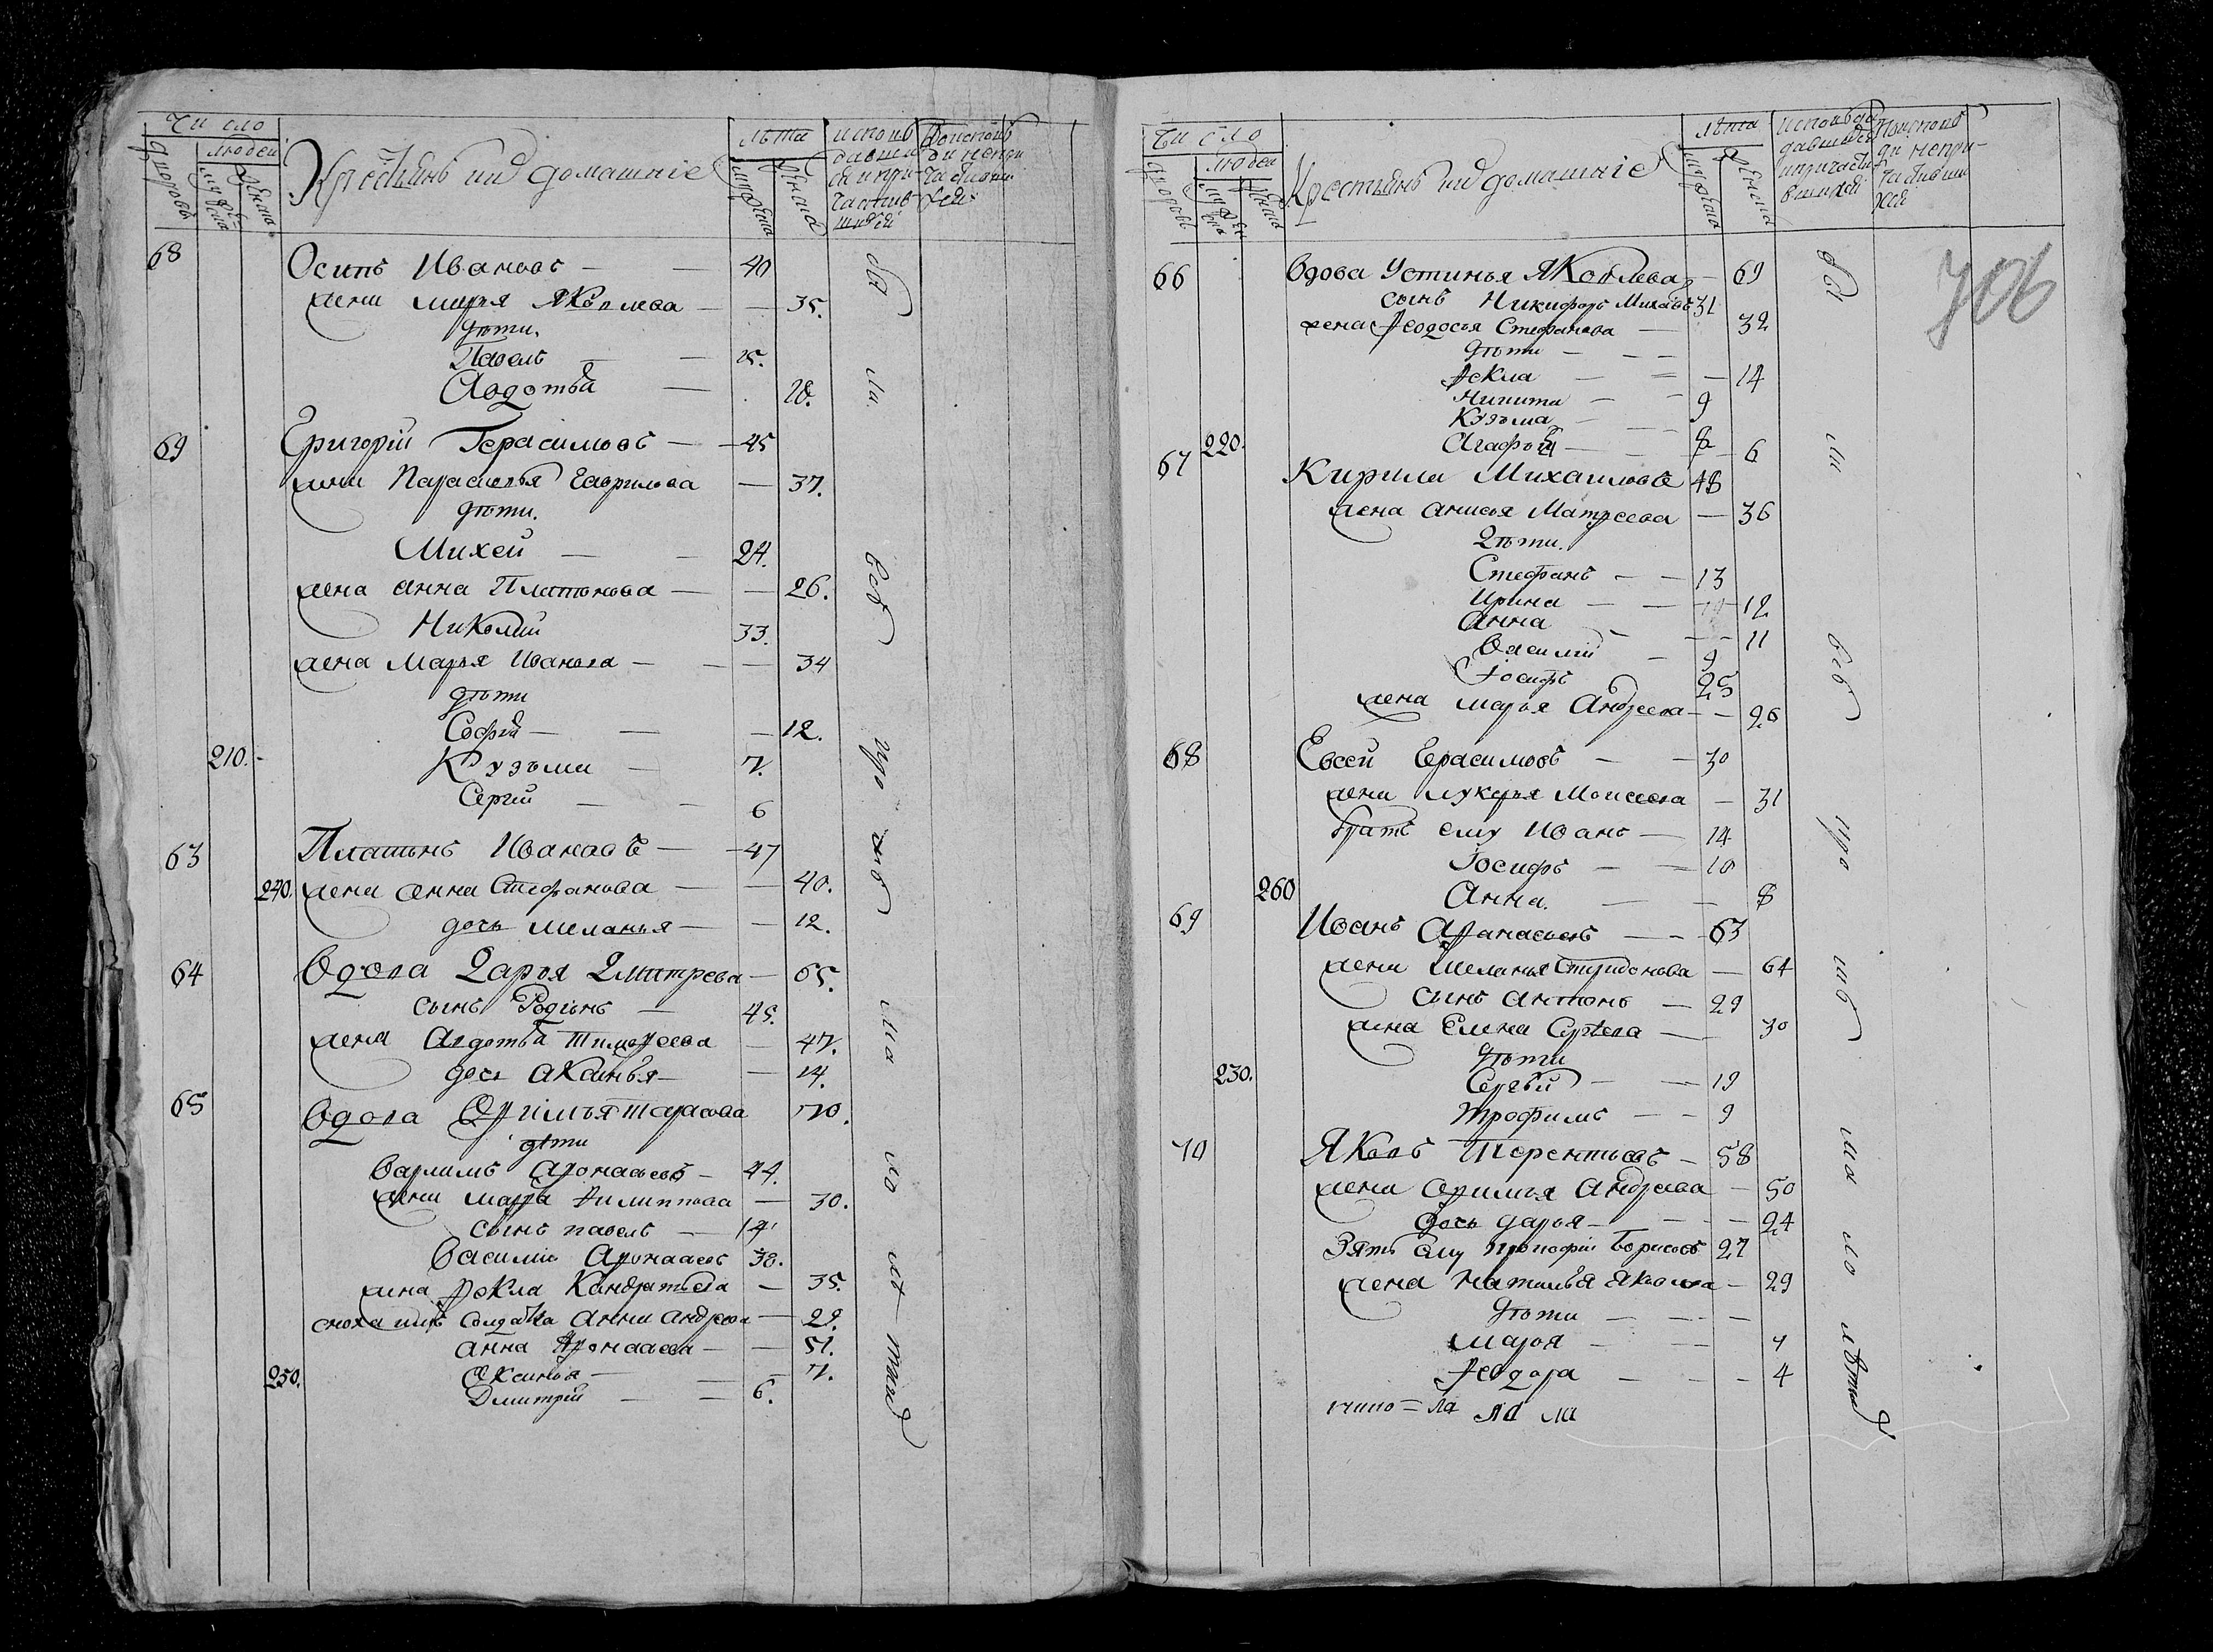 Число
дворовъ
людей
мужеска
женска
Крестьянъ ихъ домашніе
лѣта
мужеска
женска
68
Осипъ Ивановъ — — 40
жена Марья Яковлева — — 35.
дѣти.
Павелъ — — 15.
Авдотья — 18.
69
Григорій Герасимовъ — — 45
жена Парасковья Гаврилова — 37.
дѣти.
Михей — — 24.
жена Анна Платонова — — 26.
Николай 33.
жена Марья Иванова — — — 34
дѣти
Софія — — — 12.
210. Кузьма — 7.
Сергій — — 6
63
Платонъ Ивановъ — — 47
240. жена Анна Стефанова — — 40.
дочь Меланья — — 12.
64
Вдова Дарья Дмитрева — 65.
сынъ Родіонъ — 45.
жена Авдотья Тимофеева — 47.
дочь Аксинья — — 14.
65
Вдова Ефимья Тарасова 70.
дѣти
Варламъ Афонасьевъ — 44.
жена Марфа Филиппова — 30.
сынъ Павелъ — 14
Василій Афонасевъ 38.
жена Фекла Кондратьева — 35.
сноха ихъ солдатка Анна Андрева — 29.
Анна Афонасева — — 51.
250. Аксинья — — 7.
Дмитрій — — 6.
Число
дворовъ
людей
Крестьянъ ихъ домашніе
лѣта
мужеска
женска
706
66
Вдова Устинья Яковлева — 69
сынъ Никифоръ Михаевъ 31
жена Феодосья Стефанова — 32
дѣти — — —
Фекла — — — 14
Никита — — 9
Кузьма — — 8
220. — — 6
67
Кирила Михаиловъ 48
жена Анисья Матфеева — 36
дѣти.
Стефанъ — — 13
Ирина — — — 12
Анна — — — 11
Василій — 9
Іосифъ 25
жена Марья Андреева — — 26
68
Евсей Герасимовъ — — 30
жена Лукерья Моисеева — 31
братъ ему Иванъ — 14
Іосифъ — — 10
260 Анна. — — 8
69
Иванъ Афанасьевъ — — 63
жена Меланья Спиридонова — 64
сынъ Антонъ — 29
жена Елена Сергѣева — 30
дѣти
230. Сергѣй — — 19
Трофимъ — — 9
70
Яковъ Терентьевъ — 58
жена Ефимья Андреева — 50
дочь Дарья — — — — 24
Зять ему Прокофій Борисовъ 27
жена Наталья Яковлева — 29
дѣти — — — —
Марья — — 7
Феодора — — — 4